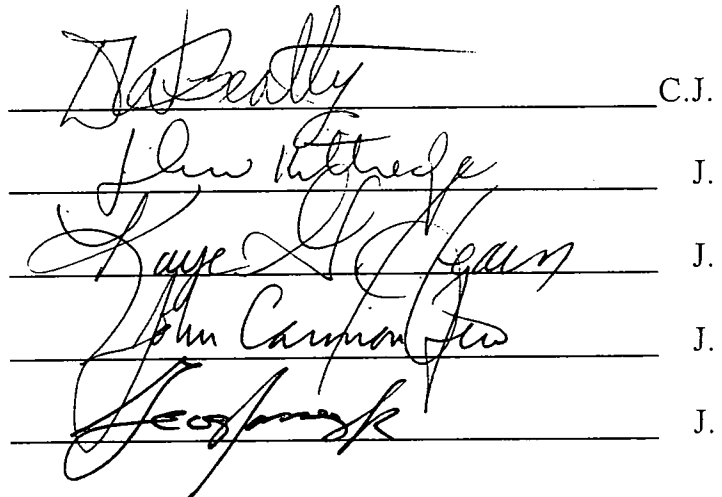 Beatty C.J.
John Kittredge J.
Kaye G Hearn J.
John Cannon Few J.
J.